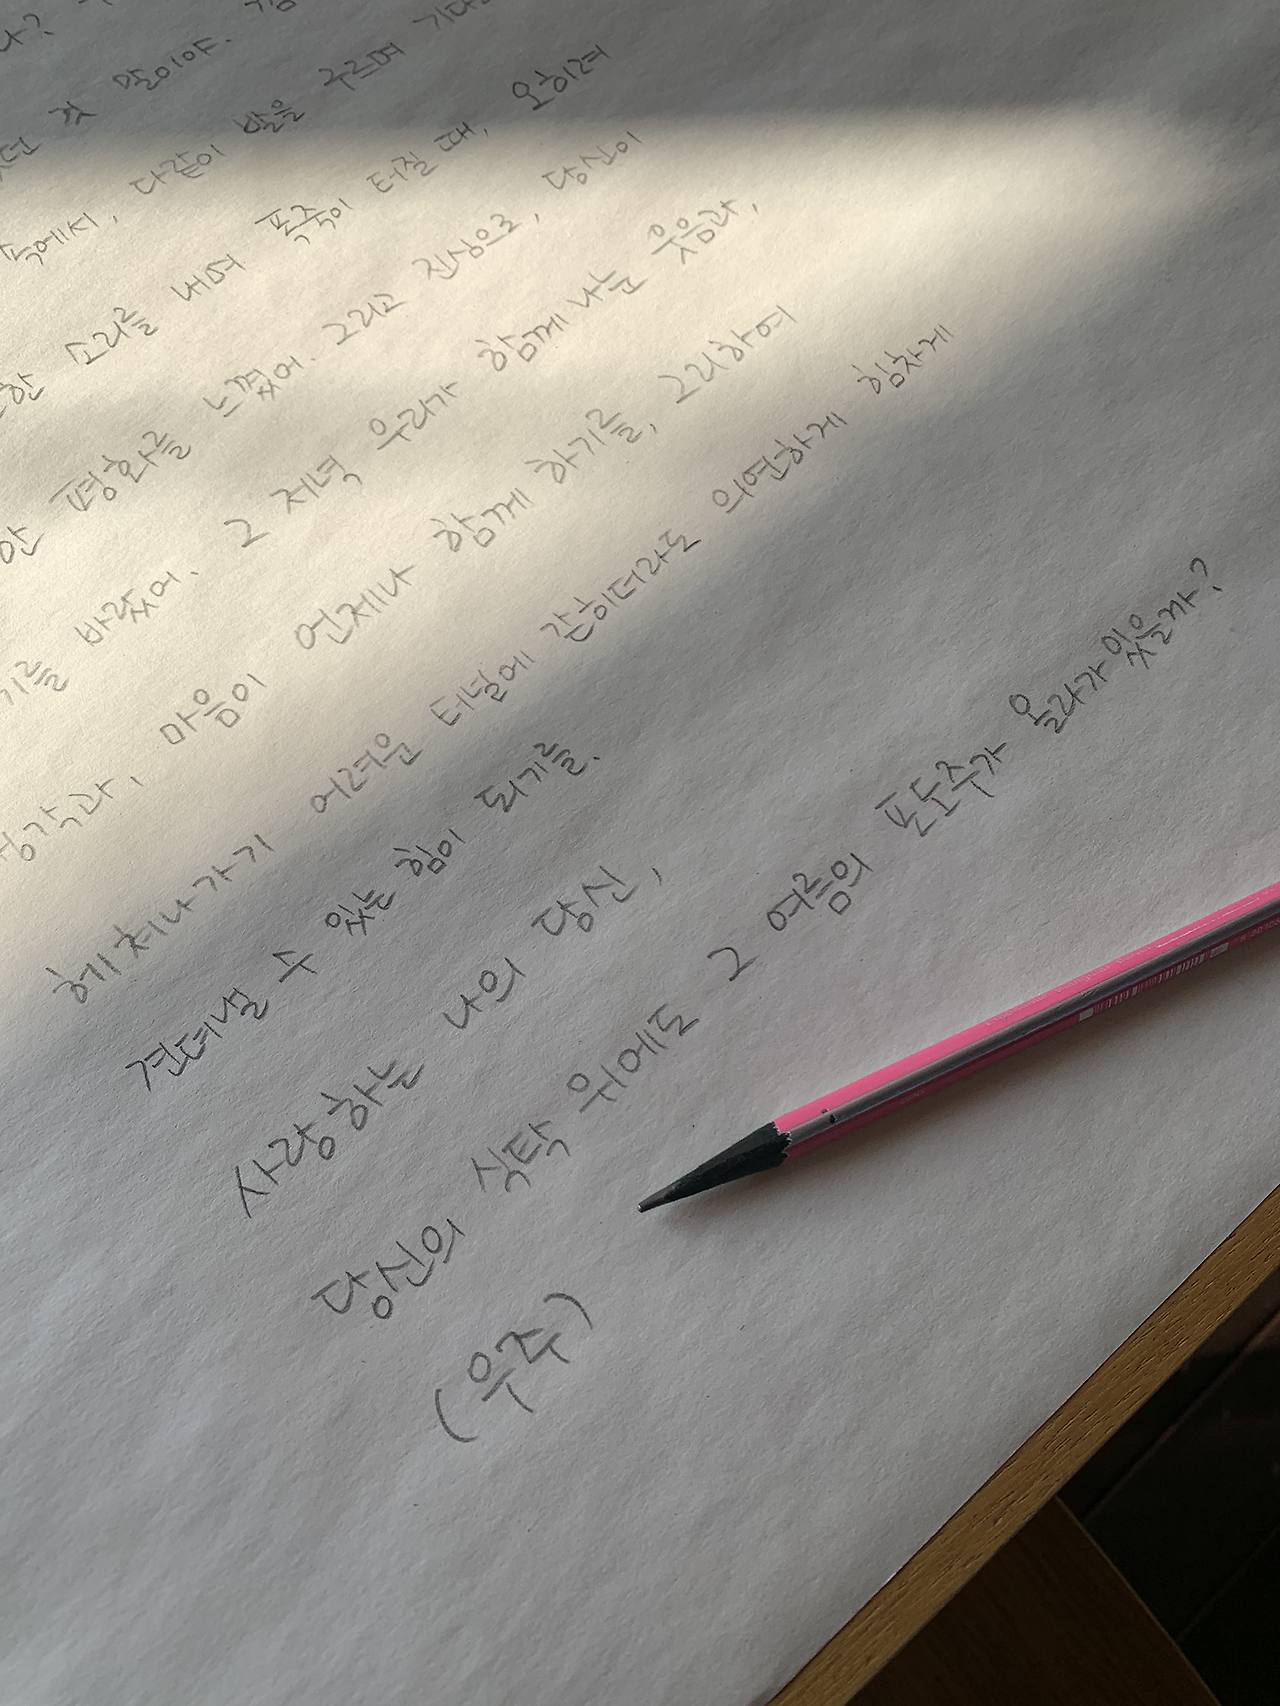 나?
것 말이야.
속에서, 다같이 발을 구르며
소리를 내며 폭죽이 터질 때, 오히려
평화를 느꼈어. 그리고 진심으로, 당신이
바랐어. 그 저녁 우리가 함께 나눈 웃음과,
생각과, 마음이 언제나 함께 하기를, 그리하여
헤쳐나가기 어려운 터널에 갇히더라도 의연하게 힘차게
견뎌낼 수 있는 힘이 되기를.
사랑하는 나의 당신,
당신의 식탁 위에도 그 여름의 포도주가 올라가 있을까?
(우주)